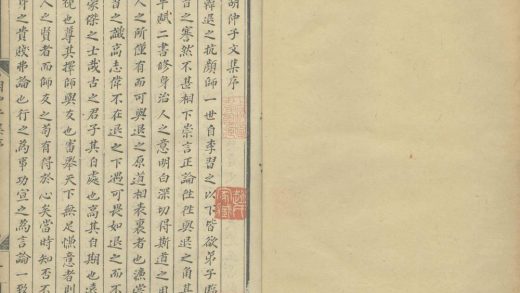 胡仲子文集序
韓退之抗顏師一世自李習之以下皆欲弟子臨
之謇然不甚相下崇言正論往往與退之角其
平賦二書修身治人之意明白深切得斯道之用
人之所僅有而可與退之原道相表裏者也濂嘗
之識高志偉不在退之下遇可畏如退之而不
豪傑之士哉古之君子其自處也高其自期也遠
視也尊其擇師與友也審舉天下無足慊意者則
人之賢者而師友之苟有得於心矣當時知否不
之貴賤弗論也行之為事功宣之為言論一致